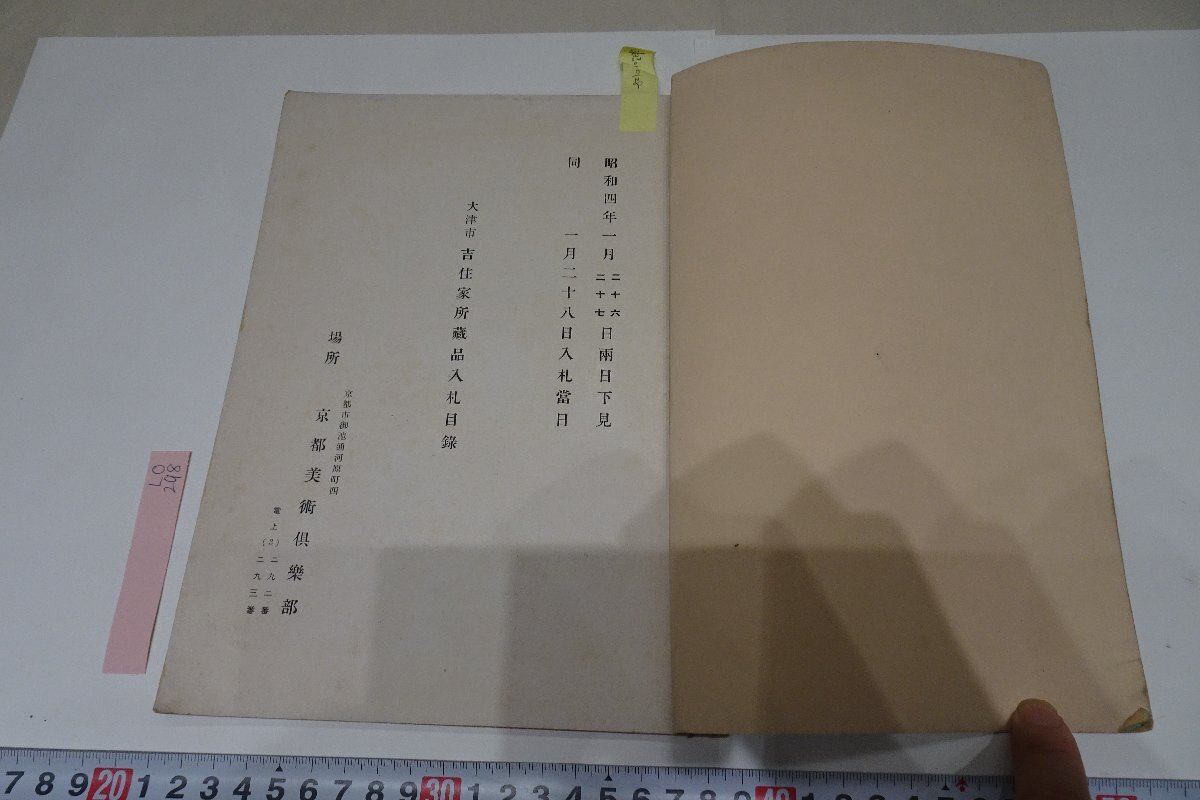 昭和四年一月二十六二十七日兩日下見
同 一月二十八日入札當日
大津市 吉住家所藏品入札目錄
場所
京都市御池通河原町西
京都美術俱樂部
電上(2)二九二番
二九三番
LO
298
7 8 9 20 1 2 3 4 5 6 7 8 9 30 1 2 3 4 5 6 7 8 9 40 1 2 3 4